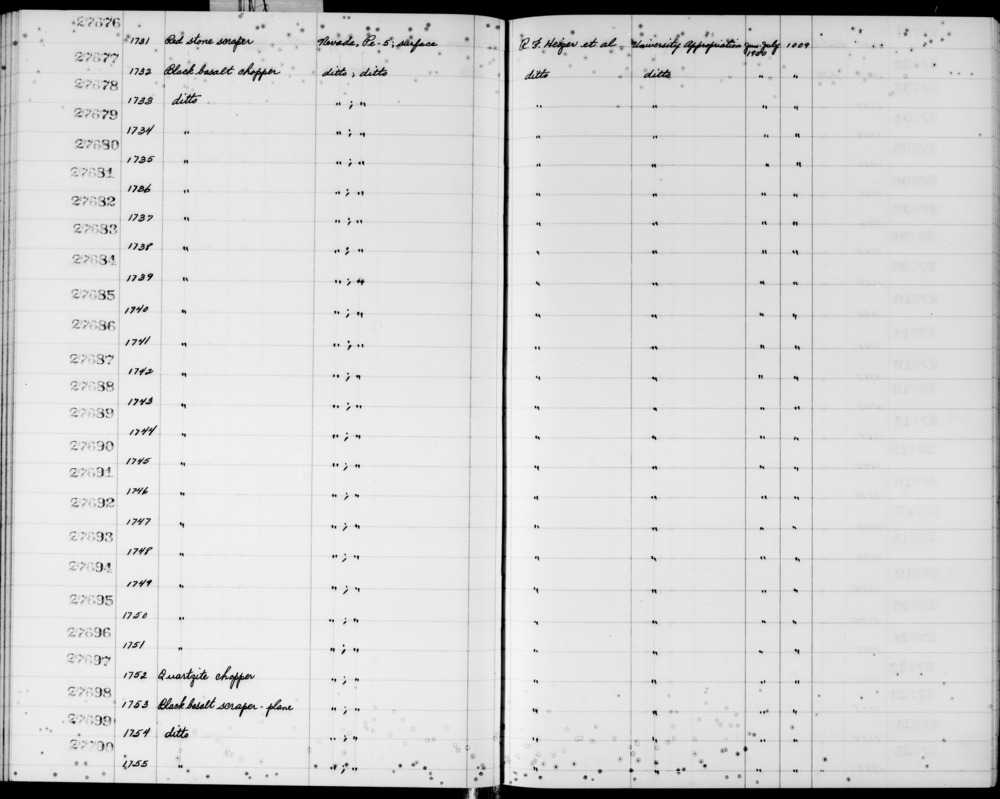 27676
1731 Red stone scraper Nevada, Pe-5, surface R. F. Heizer et al University Appropriation Jun-July 1009
27677
1732 Black basalt chopper ditto ; ditto ditto ditto " "
27678
1733 ditto " ; " " " " "
27679
1734 " " ; " " " " "
27680
1735 " " ; " " " " "
27681
1736 " " ; " " " " "
27682
1737 " " ; " " " " "
27683
1738 " " ; " " " " "
27684
1739 " " ; " " " " "
27685
1740 " " ; " " " " "
27686
1741 " " ; " " " " "
27687
1742 " " ; " " " " "
27688
1743 " " ; " " " " "
27689
1744 " " ; " " " " "
27690
1745 " " ; " " " " "
27691
1746 " " ; " " " " "
27692
1747 " " ; " " " " "
27693
1748 " " ; " " " " "
27694
1749 " " ; " " " " "
27695
1750 " " ; " " " " "
27696
1751 " " ; " " " " "
27697
1752 Quartzite chopper " ; " " " " "
27698
1753 Black basalt scraper-plane " ; " " " " "
27699
1754 ditto " ; " " " " "
27700
1755 " " ; " " " " "